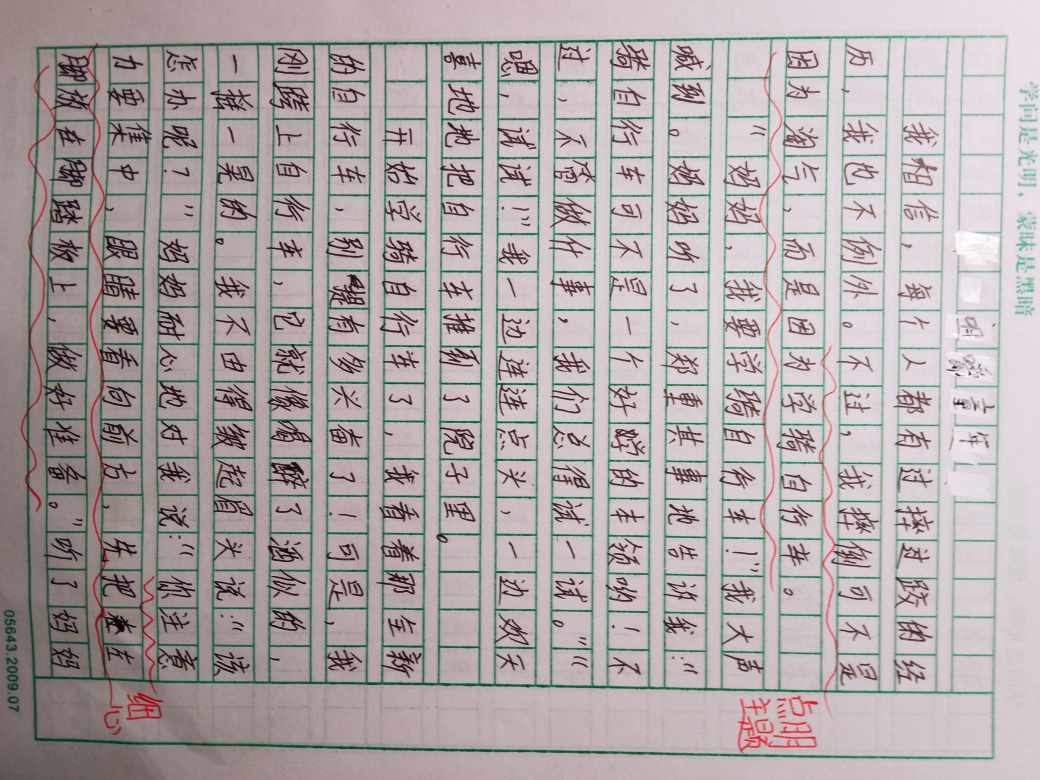 学问是光明，蒙昧是黑暗
童年
我相信，每个人都有过摔过跤的经
历，我也不例外。不过，我摔倒可不是
因为淘气，而是因为学骑自行车。
“妈妈，我要学骑自行车！”我大声
喊到。妈妈听了，郑重其事地告诉我：“
骑自行车可不是一个好学的本领哟！不
过，不管做什事，我们总得试一试。”“
嗯，试试！”我一边连连点头，一边欢天
喜地地把自行车推到了院子里。
开始学骑自行车了，我看着那全新
的自行车，别提有多兴奋了！可是，我
刚骑上自行车，它就像喝醉了酒似的，
一摇一晃的。我不由得皱起眉头说：“该
怎办呢？”妈妈耐心地对我说：“你注意
力要集中，眼睛要看向前方，先把左
脚放在脚踏板上，做好准备。”听了妈妈
点明主题
细心
05643.2009.07